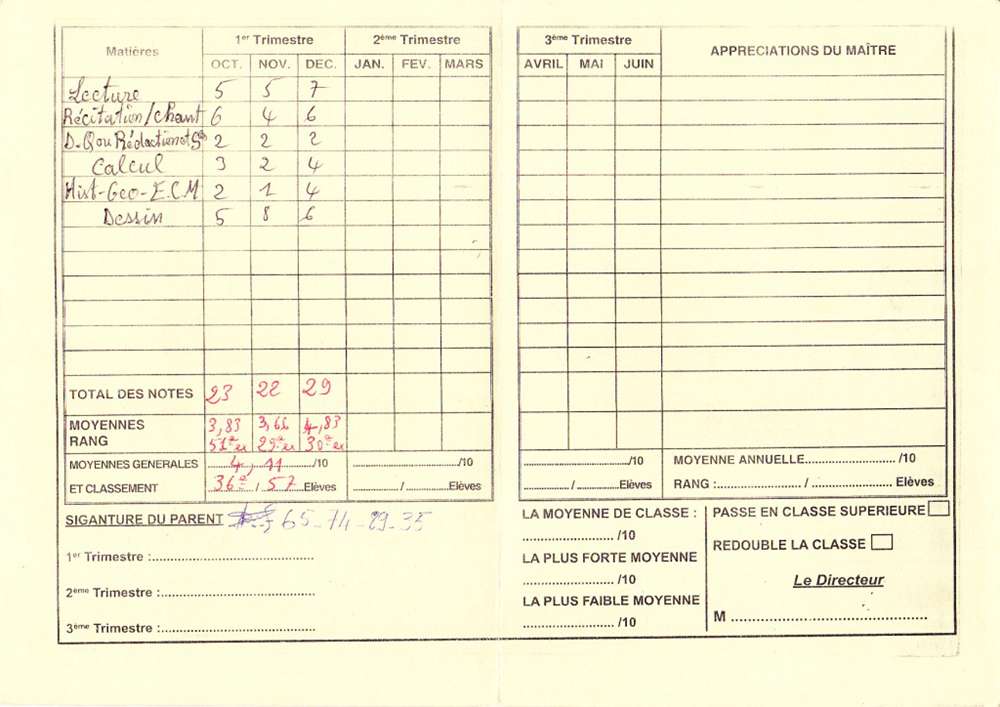 Matières 1er Trimestre 2ème Trimestre
OCT. NOV. DEC. JAN. FEV. MARS
Lecture 5 5 7
Récitation/chant 6 4 6
D-Q ou Rédaction et 2 2 2
Calcul 3 2 4
Hist-Geo-E.C.M 2 1 4
Dessin 5 8 6
TOTAL DES NOTES 23 22 29
MOYENNES 3,83 3,66 4,83
RANG 51e ex 29e ex 30e ex
MOYENNES GENERALES 4,11 /10 /10
ET CLASSEMENT 36e / 57 Elèves / Elèves
SIGANTURE DU PARENT 65-74-29-35
1er Trimestre :
2ème Trimestre :
3ème Trimestre :
3ème Trimestre APPRECIATIONS DU MAÎTRE
AVRIL MAI JUIN
/10 MOYENNE ANNUELLE /10
/ Elèves RANG : / Elèves
LA MOYENNE DE CLASSE :
/10
LA PLUS FORTE MOYENNE
/10
LA PLUS FAIBLE MOYENNE
/10
PASSE EN CLASSE SUPERIEURE
REDOUBLE LA CLASSE
Le Directeur
M